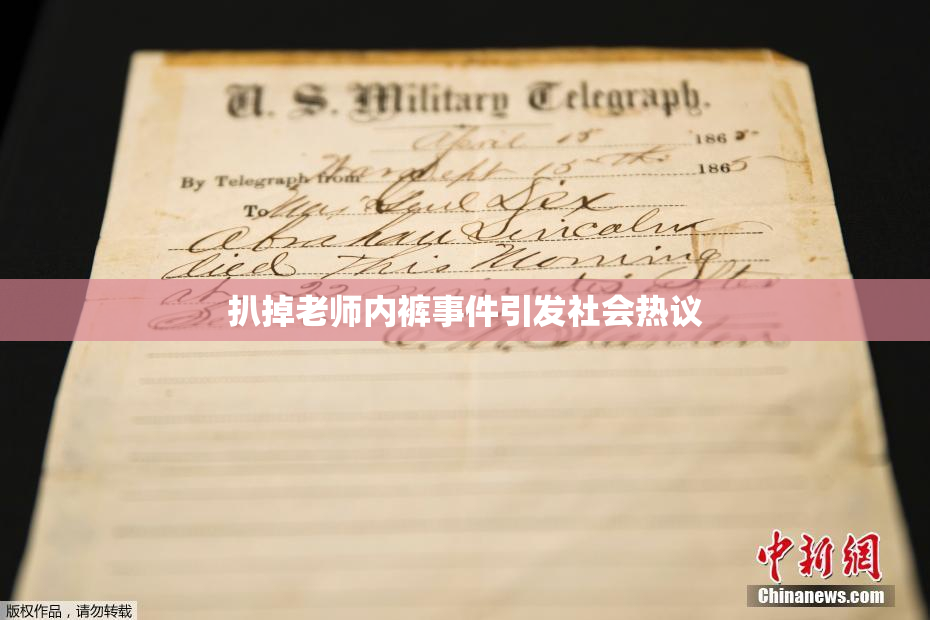 U. S. Military Telegraph.
April 15 1865
By Telegraph from War Dept 15th 1865
To Maj Genl Dix
Abraham Lincoln
died This Morning
at 22 minutes after
扒掉老师内裤事件引发社会热议
E. M. Stanton
中新网
Chinanews.com
版权作品，请勿转载